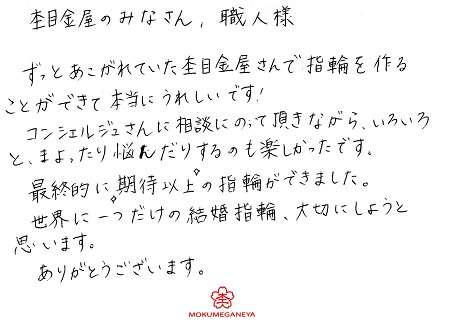 杢目金屋のみなさん, 職人様
ずっとあこがれていた杢目金屋さんで指輪を作る
ことができて本当にうれしいです!
コンシェルジュさんに相談にのって頂きながら、いろいろ
と、まよったり悩んだりするのも楽しかったです。
最終的に期待以上の指輪ができました。
世界に一つだけの結婚指輪、大切にしようと
思います。
ありがとうございます。
MOKUMEGANEYA